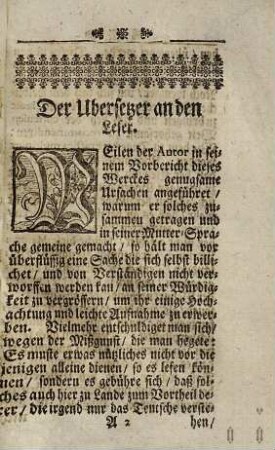 Der Ubersetzer an den
Leser.
WEilen der Autor in sei-
nem Vorbericht dieses
Werckes genugsame
Ursachen angeführet /
warum er solches zu-
sammen getragen und
in seiner Mutter-Spra-
che gemeine gemacht / so hält man vor
überflüssig eine Sache die sich selbst billi-
chet / und von Verständigen nicht ver-
worffen werden kan / an seiner Würdig-
keit zu vergrössern / um ihr einige Hoch-
achtung und leichte Aufnahme zu erwer-
ben. Vielmehr entschuldiget man sich /
wegen der Mißgunst / die man hegete:
Es muste etwas nützliches nicht vor die
jenigen alleine dienen / so es lesen kön-
nen / sondern es gebühre sich / daß sol-
ches auch hier zu Lande zum Vortheil de-
rer / die irgend nur das Teutsche verste-
A 2 hen /